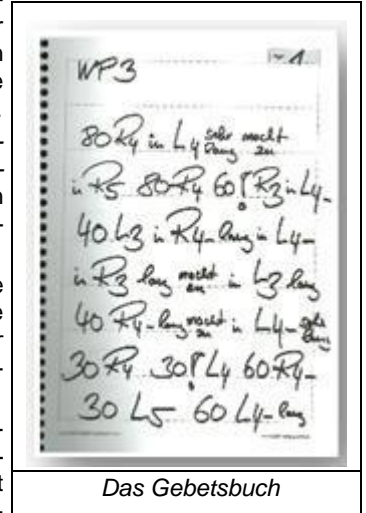 WP3
80 R4 in L4 sehr lang macht zu
in R5 80 R4 60 ! R3 in L4-
40 L3 in R4- lang in L4-
in R3 lang macht zu in L3 lang
40 R4- lang macht zu in L4- sehr lang
30 R4 30 ! L4 60 R4-
30 L5 60 L4- lang
Das Gebetsbuch